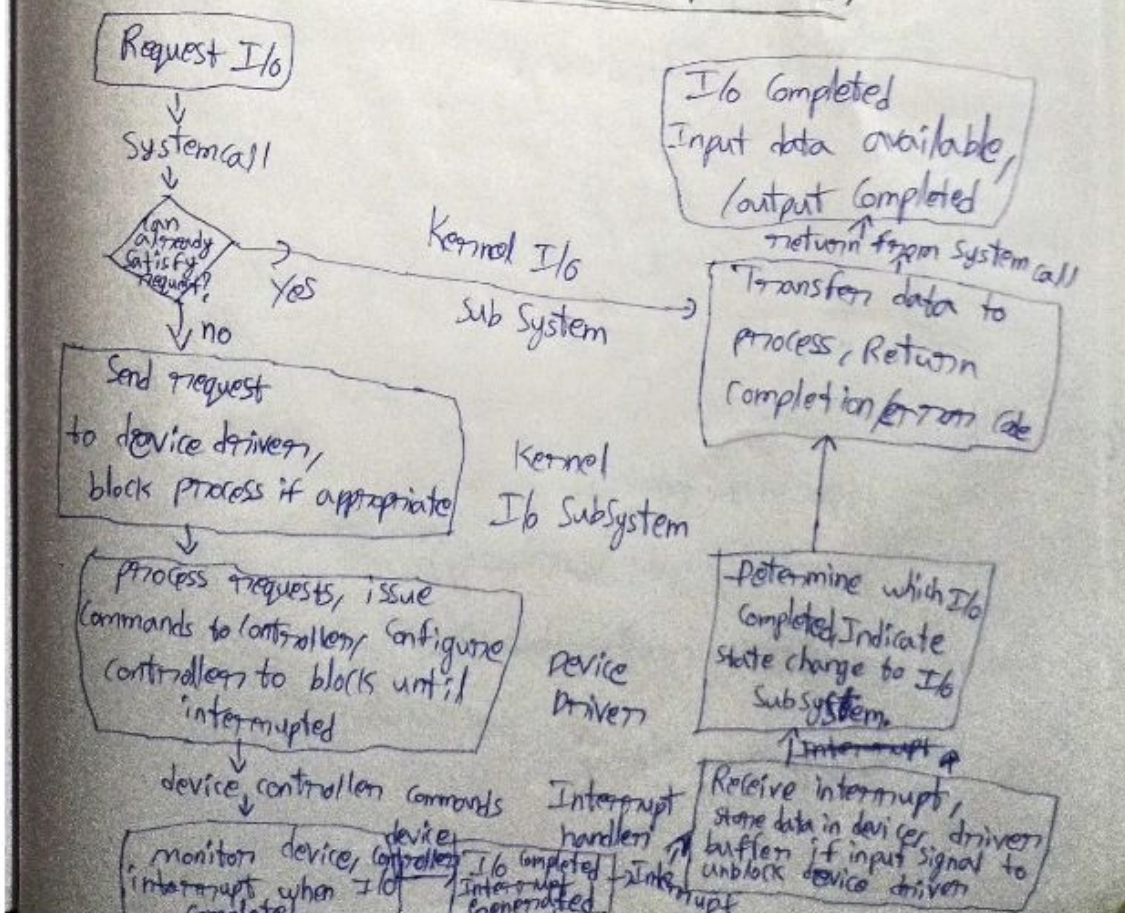 Request I/o
System call
can
already
satisfy
request?
yes
no
Kernel I/o
Sub System
I/o Completed
Input data available,
/output Completed
return from System call
Transfer data to
process, Return
Completion/error Code
Send request
to device driver,
block process if appropriate
Kernel
I/o Subsystem
process requests, issue
Commands to Controller, Configure
controller to block until
interrupted
Device
Driver
Determine which I/o
Completed, Indicate
state change to I/o
Subsystem.
Interrupt
device controller commands
Interrupt
handler
Receive interrupt,
store data in device, driver
buffer if input signal to
unblock device driver
monitor device,
interrupt when I/o
Complete
device
Controller
I/o Completed
Interrupt
Generated
Interrupt